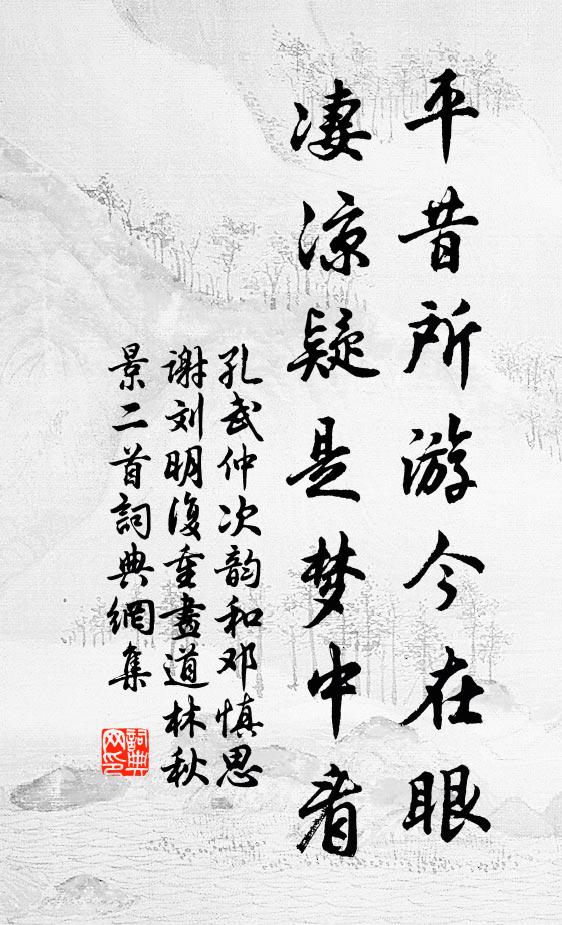 平昔所游今在眼
凄凉疑是梦中看
孔武仲次韵和邓慎思
谢刘明復重畫道林秋
景二首詞典網集
詞典
网印